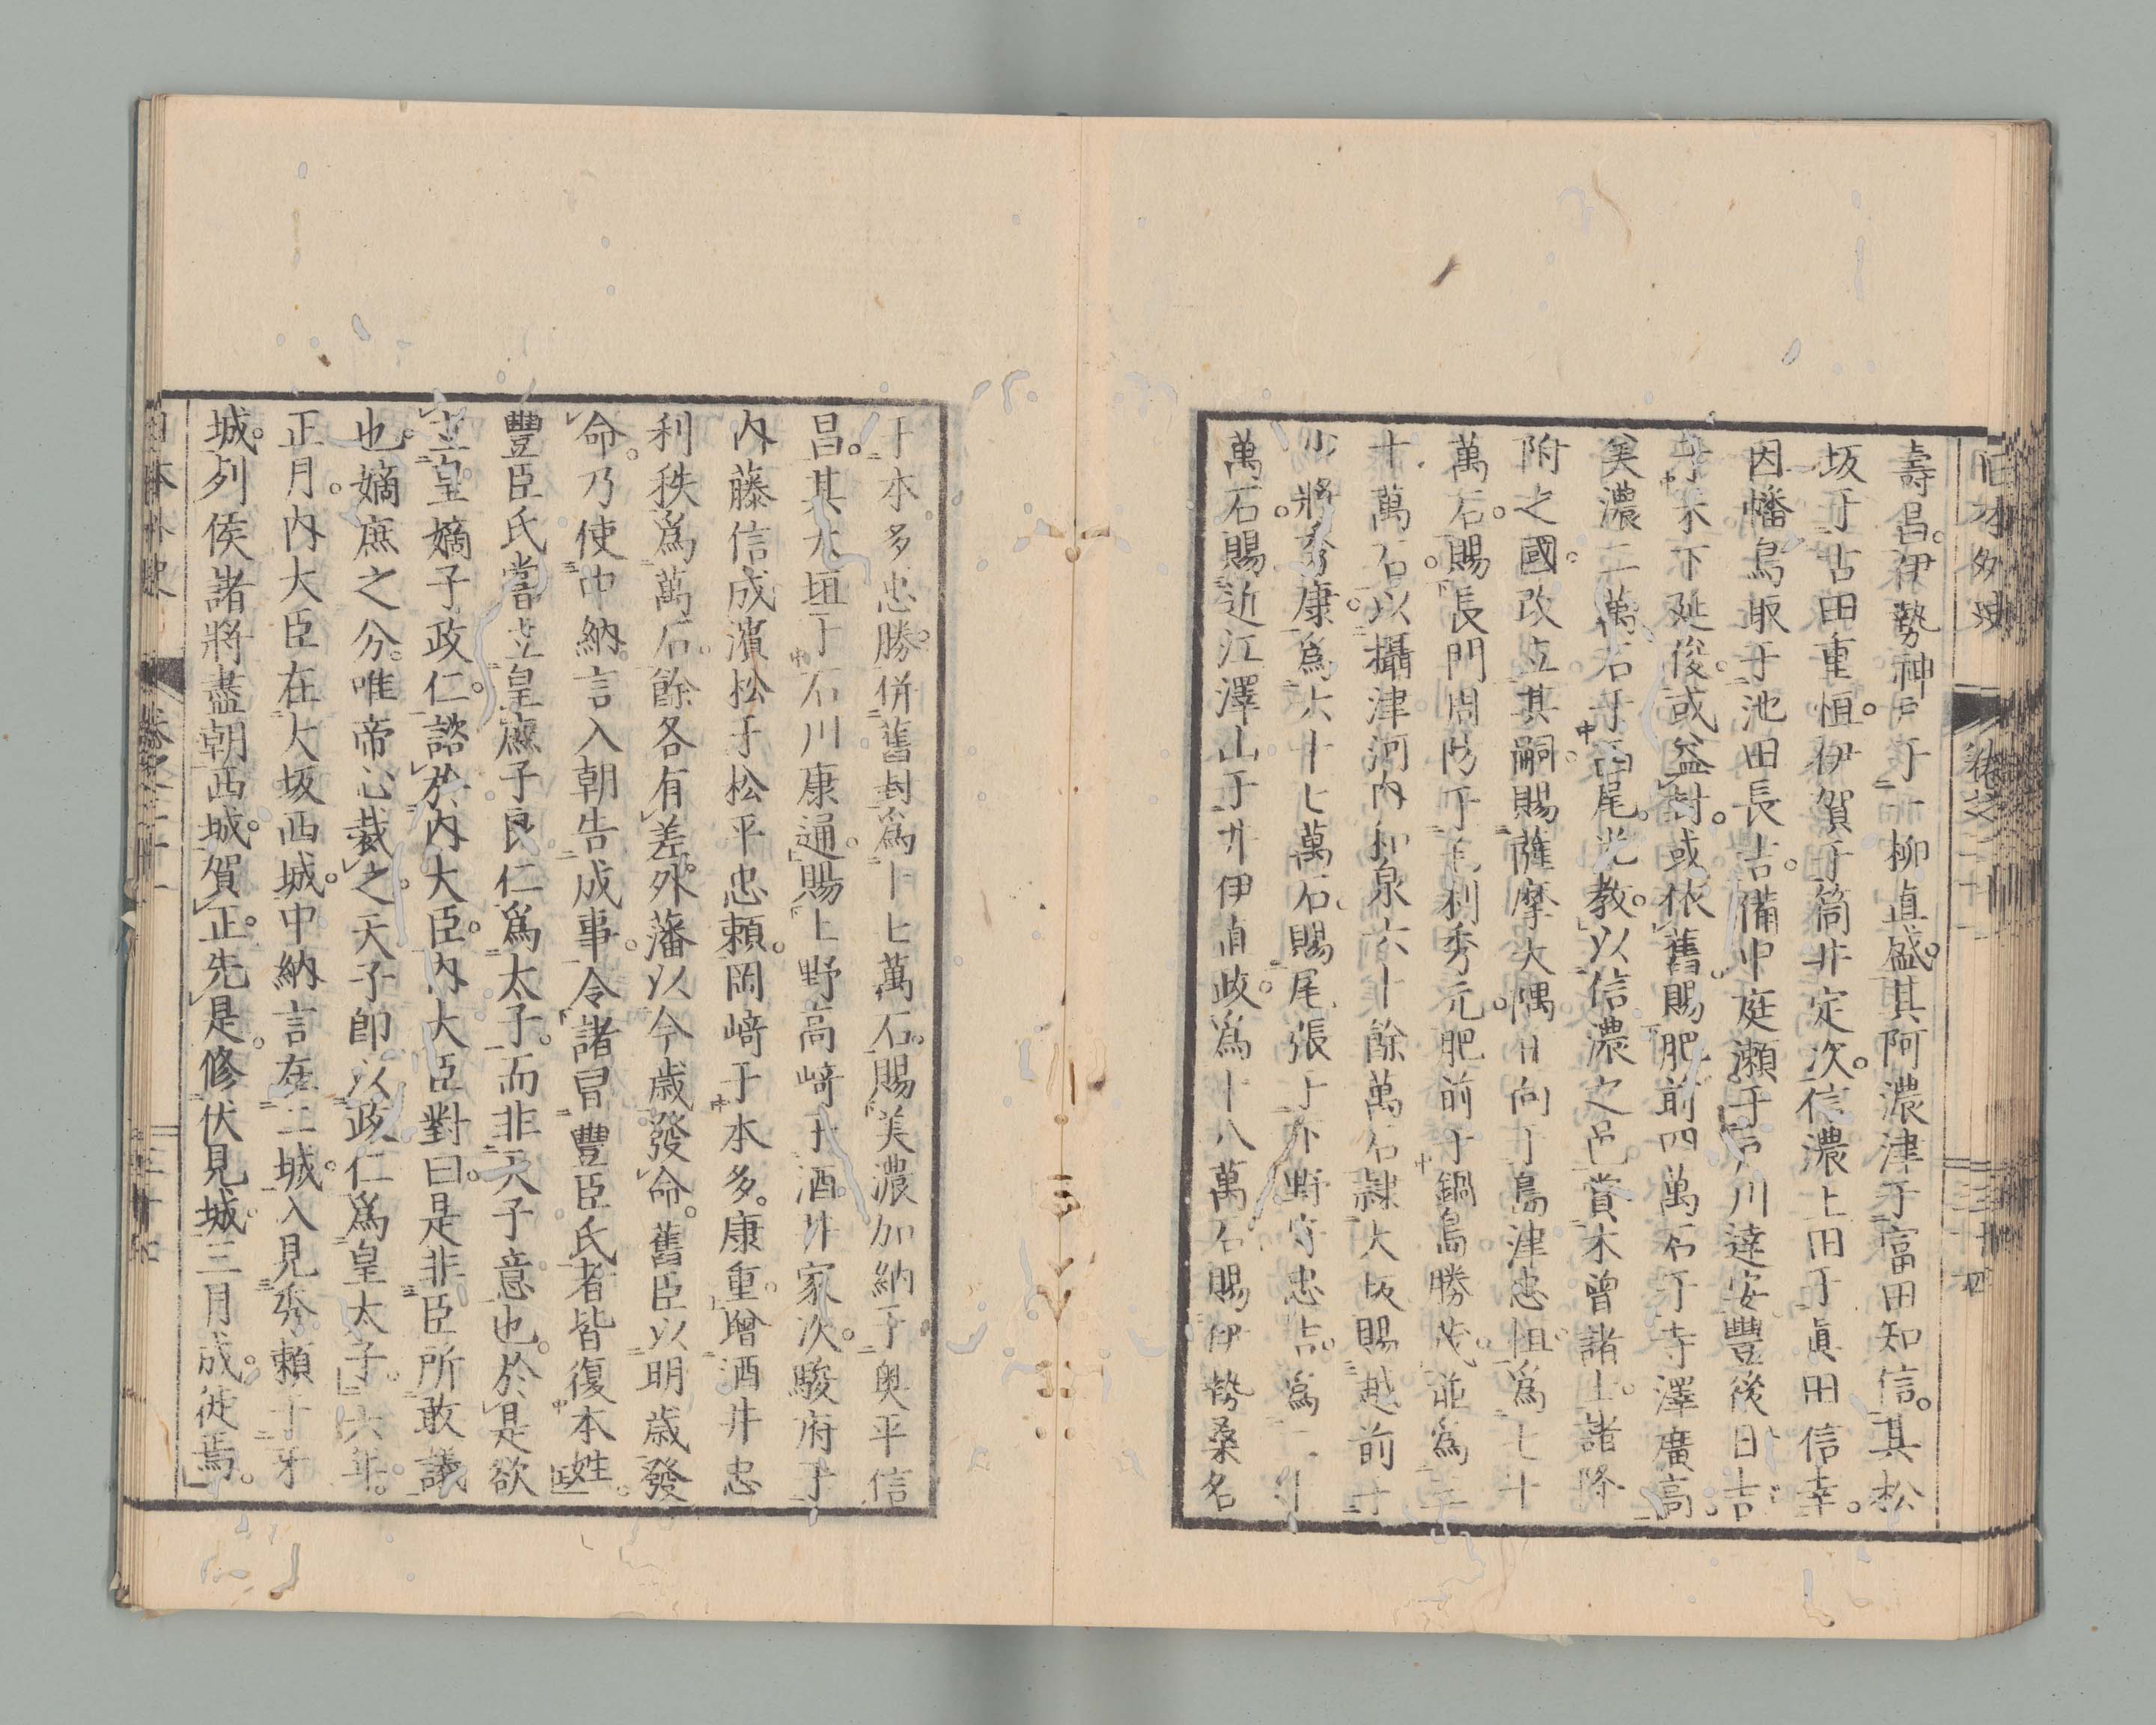 日本外史
卷之二十一
三十四
壽昌。伊勢神戸于一柳直盛。其阿濃津于富田知信。其松
坂于古田重恒。伊賀于筒井定次。信濃上田于眞田信幸。
因幡鳥取于池田長吉。備中庭瀬于戸川逵安豐後日吉
于木下延俊。或益封。或依舊。賜肥前四萬石于寺澤廣高。
美濃二萬石于西尾光教。以信濃之邑賞木曾諸士。諸降
附之國。改立其嗣。賜薩摩大隅日向于島津忠恒。爲七十
萬石。賜長門周防于毛利秀元。肥前于鍋島勝茂。並爲三
十萬石。以攝津河内和泉六十餘萬石隷大坂賜越前于
少將秀康。爲六十七萬石。賜尾張于下野守忠吉。爲二十
萬石。賜近江澤山于井伊直政。爲十八萬石。賜伊勢桑名
于本多忠勝。併舊封爲十七萬石。賜美濃加納于奥平信
昌。其大垣于石川康通。賜上野高﨑于酒井家次。駿府于
内藤信成濱松于松平忠頼。岡﨑于本多。康重。增酒井忠
利秩爲萬石。餘各有差。外藩以今歳發命。舊臣以明歳發
命。乃使中納言入朝告成事。令諸冒豐臣氏者皆復本姓。
豐臣氏嘗立皇庶子良仁爲太子。而非天子意也。於是欲
立皇嫡子政仁。諮於内大臣。内大臣對曰。是非臣所敢議
也。嫡庶之分。唯帝心裁之。天子即以政仁爲皇太子。六年。
正月。内大臣在大坂西城。中納言在二城。入見秀頼于牙
城。列侯諸將盡朝西城。賀正。先是。修伏見城。三月成。徙焉。
日本外史
卷之二十一